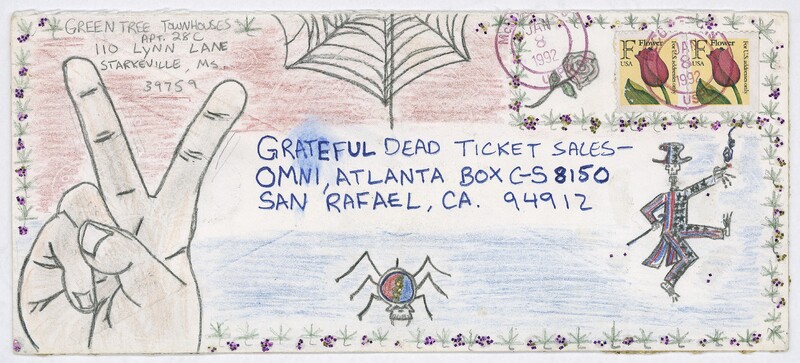 GREEN TREE TOWNHOUSES
APT. 28C
110 LYNN LANE
STARKEVILLE, MS.
39759
JAN
8
1992
F Flower
USA
For U.S. addresses only
F Flower
USA
For U.S. addresses only
8
1992
US
GRATEFUL DEAD TICKET SALES—
OMNI, ATLANTA BOX C-S 8150
SAN RAFAEL, CA. 94912